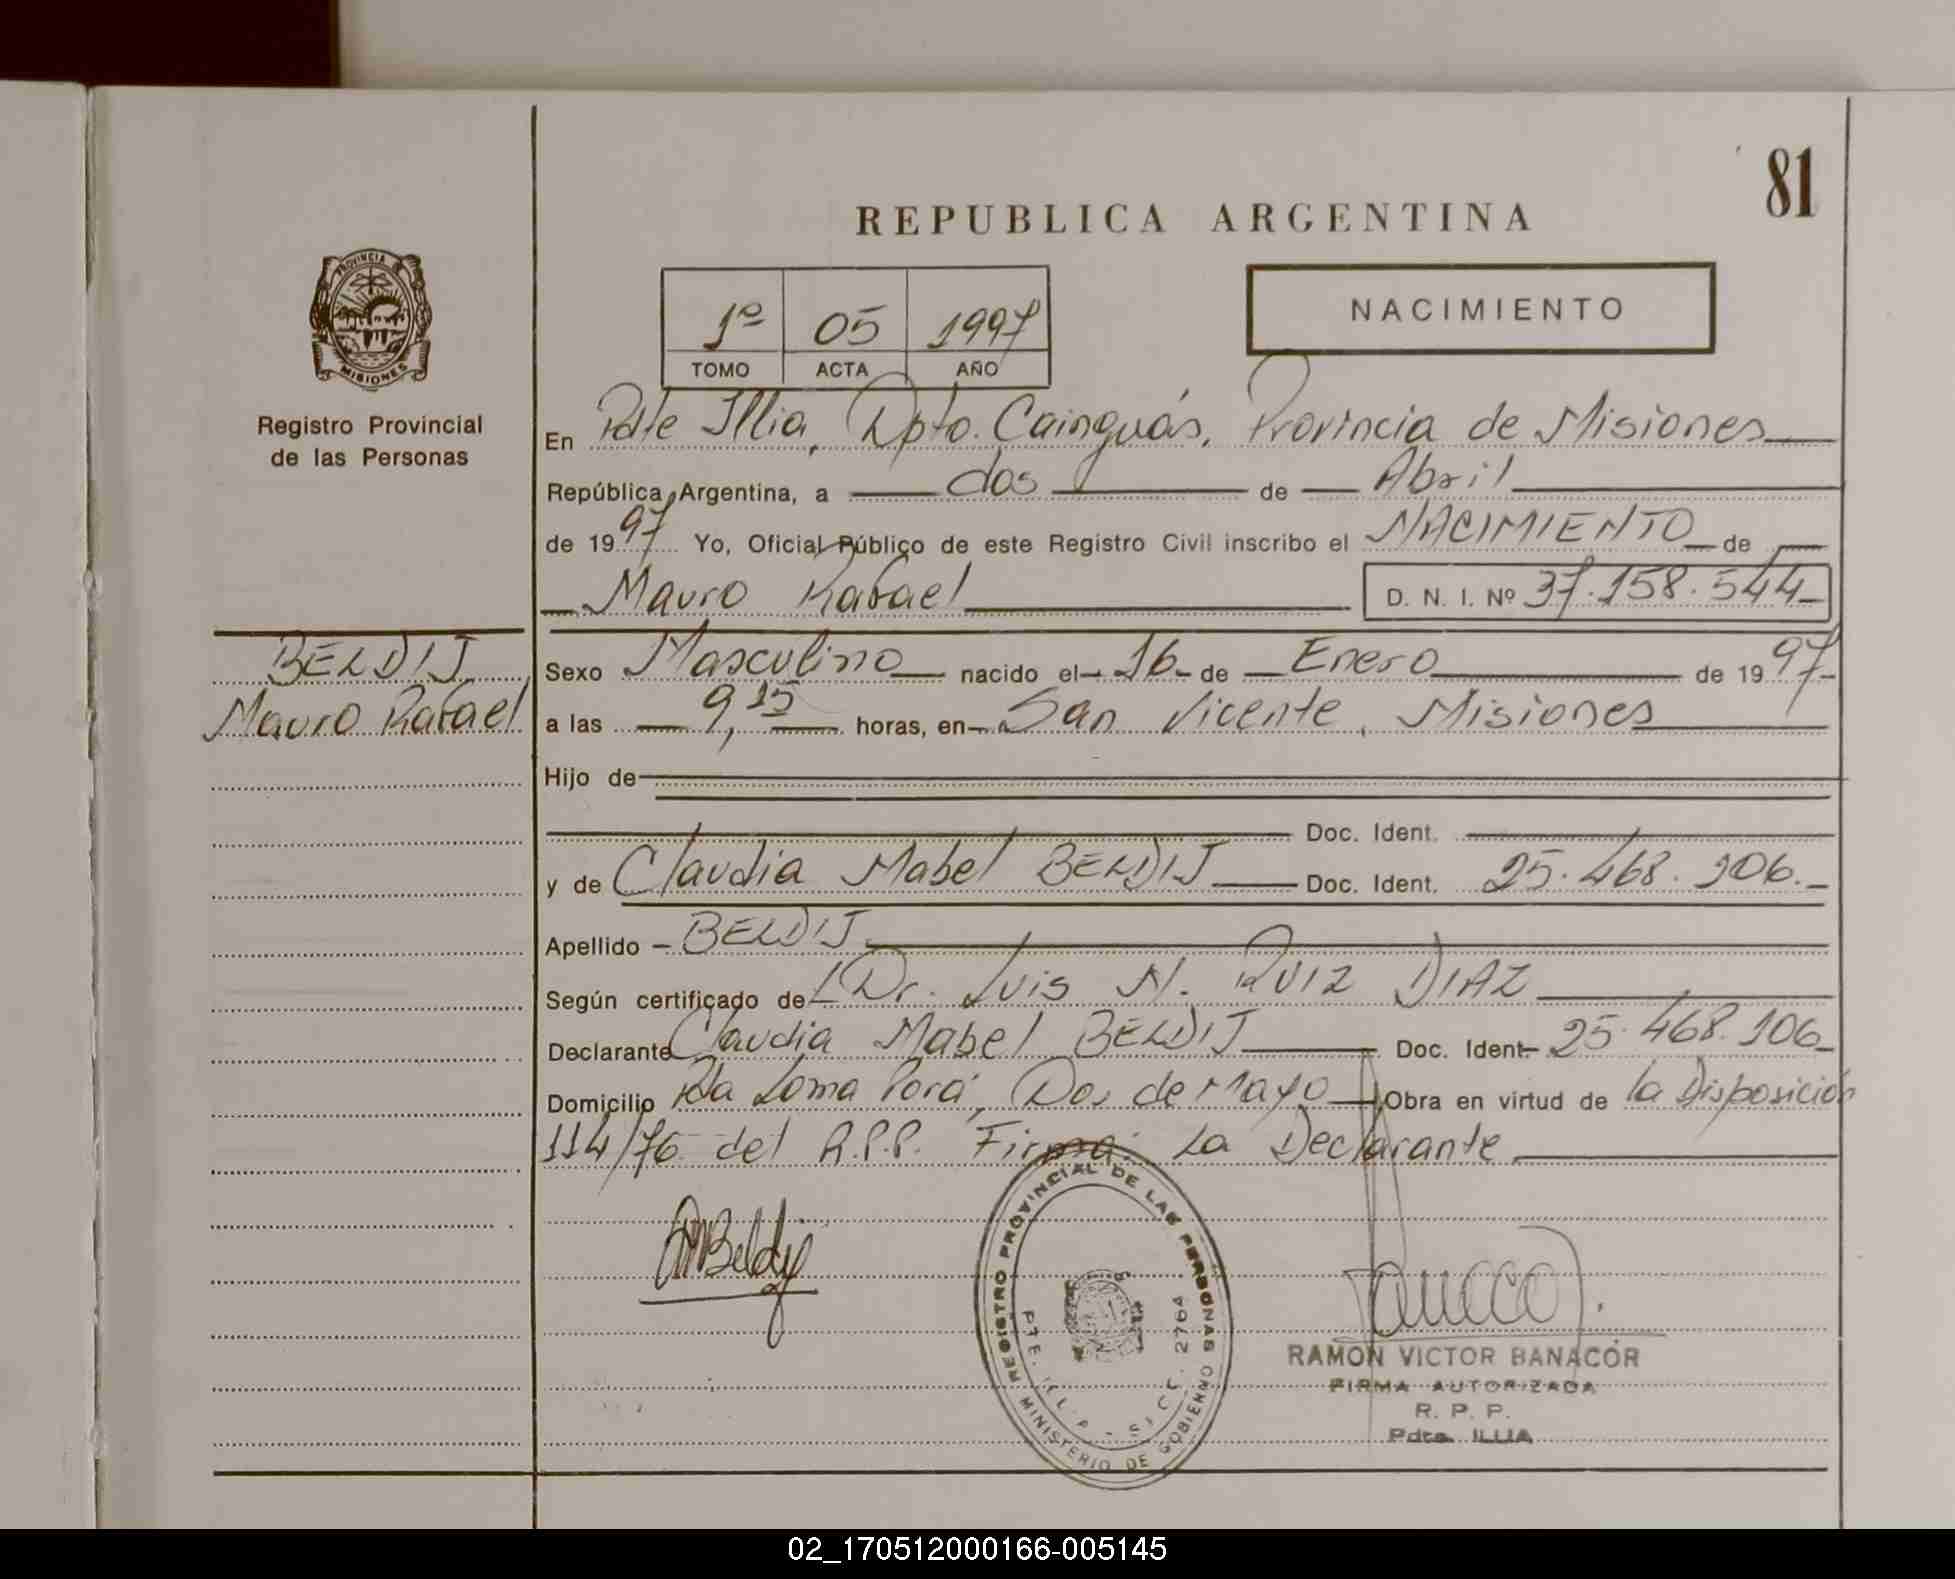 81
REPUBLICA ARGENTINA
PROVINCIA DE
MISIONES
Registro Provincial
de las Personas
1º 05 1997
TOMO ACTA AÑO
NACIMIENTO
En Pdte Illia, Dpto. Cainguás, Provincia de Misiones
República Argentina, a dos de Abril
de 1997 Yo, Oficial Público de este Registro Civil inscribo el NACIMIENTO de
Mauro Rafael D. N. I. Nº 37.158.544
BELDIJ
Mauro Rafael
Sexo Masculino nacido el 16 de Enero de 1997
a las 9,15 horas, en San Vicente, Misiones
Hijo de
Doc. Ident.
y de Claudia Mabel BELDIJ Doc. Ident. 25.468.106.
Apellido BELDIJ
Según certificado del Dr. Luis N. RUIZ DIAZ
Declarante Claudia Mabel BELDIJ Doc. Ident 25.468.106
Domicilio Pda Loma Porá, Dos de Mayo Obra en virtud de la Disposición
114/76 del R.P.P. Firma: La Declarante
CMBeldij
REGISTRO PROVINCIAL DE LAS PERSONAS
MINISTERIO DE GOBIERNO
PTE. ILLIA - SICC. 2764
RAMON VICTOR BANACOR
FIRMA AUTORIZADA
R. P. P.
Pdte. ILLIA
02_170512000166-005145